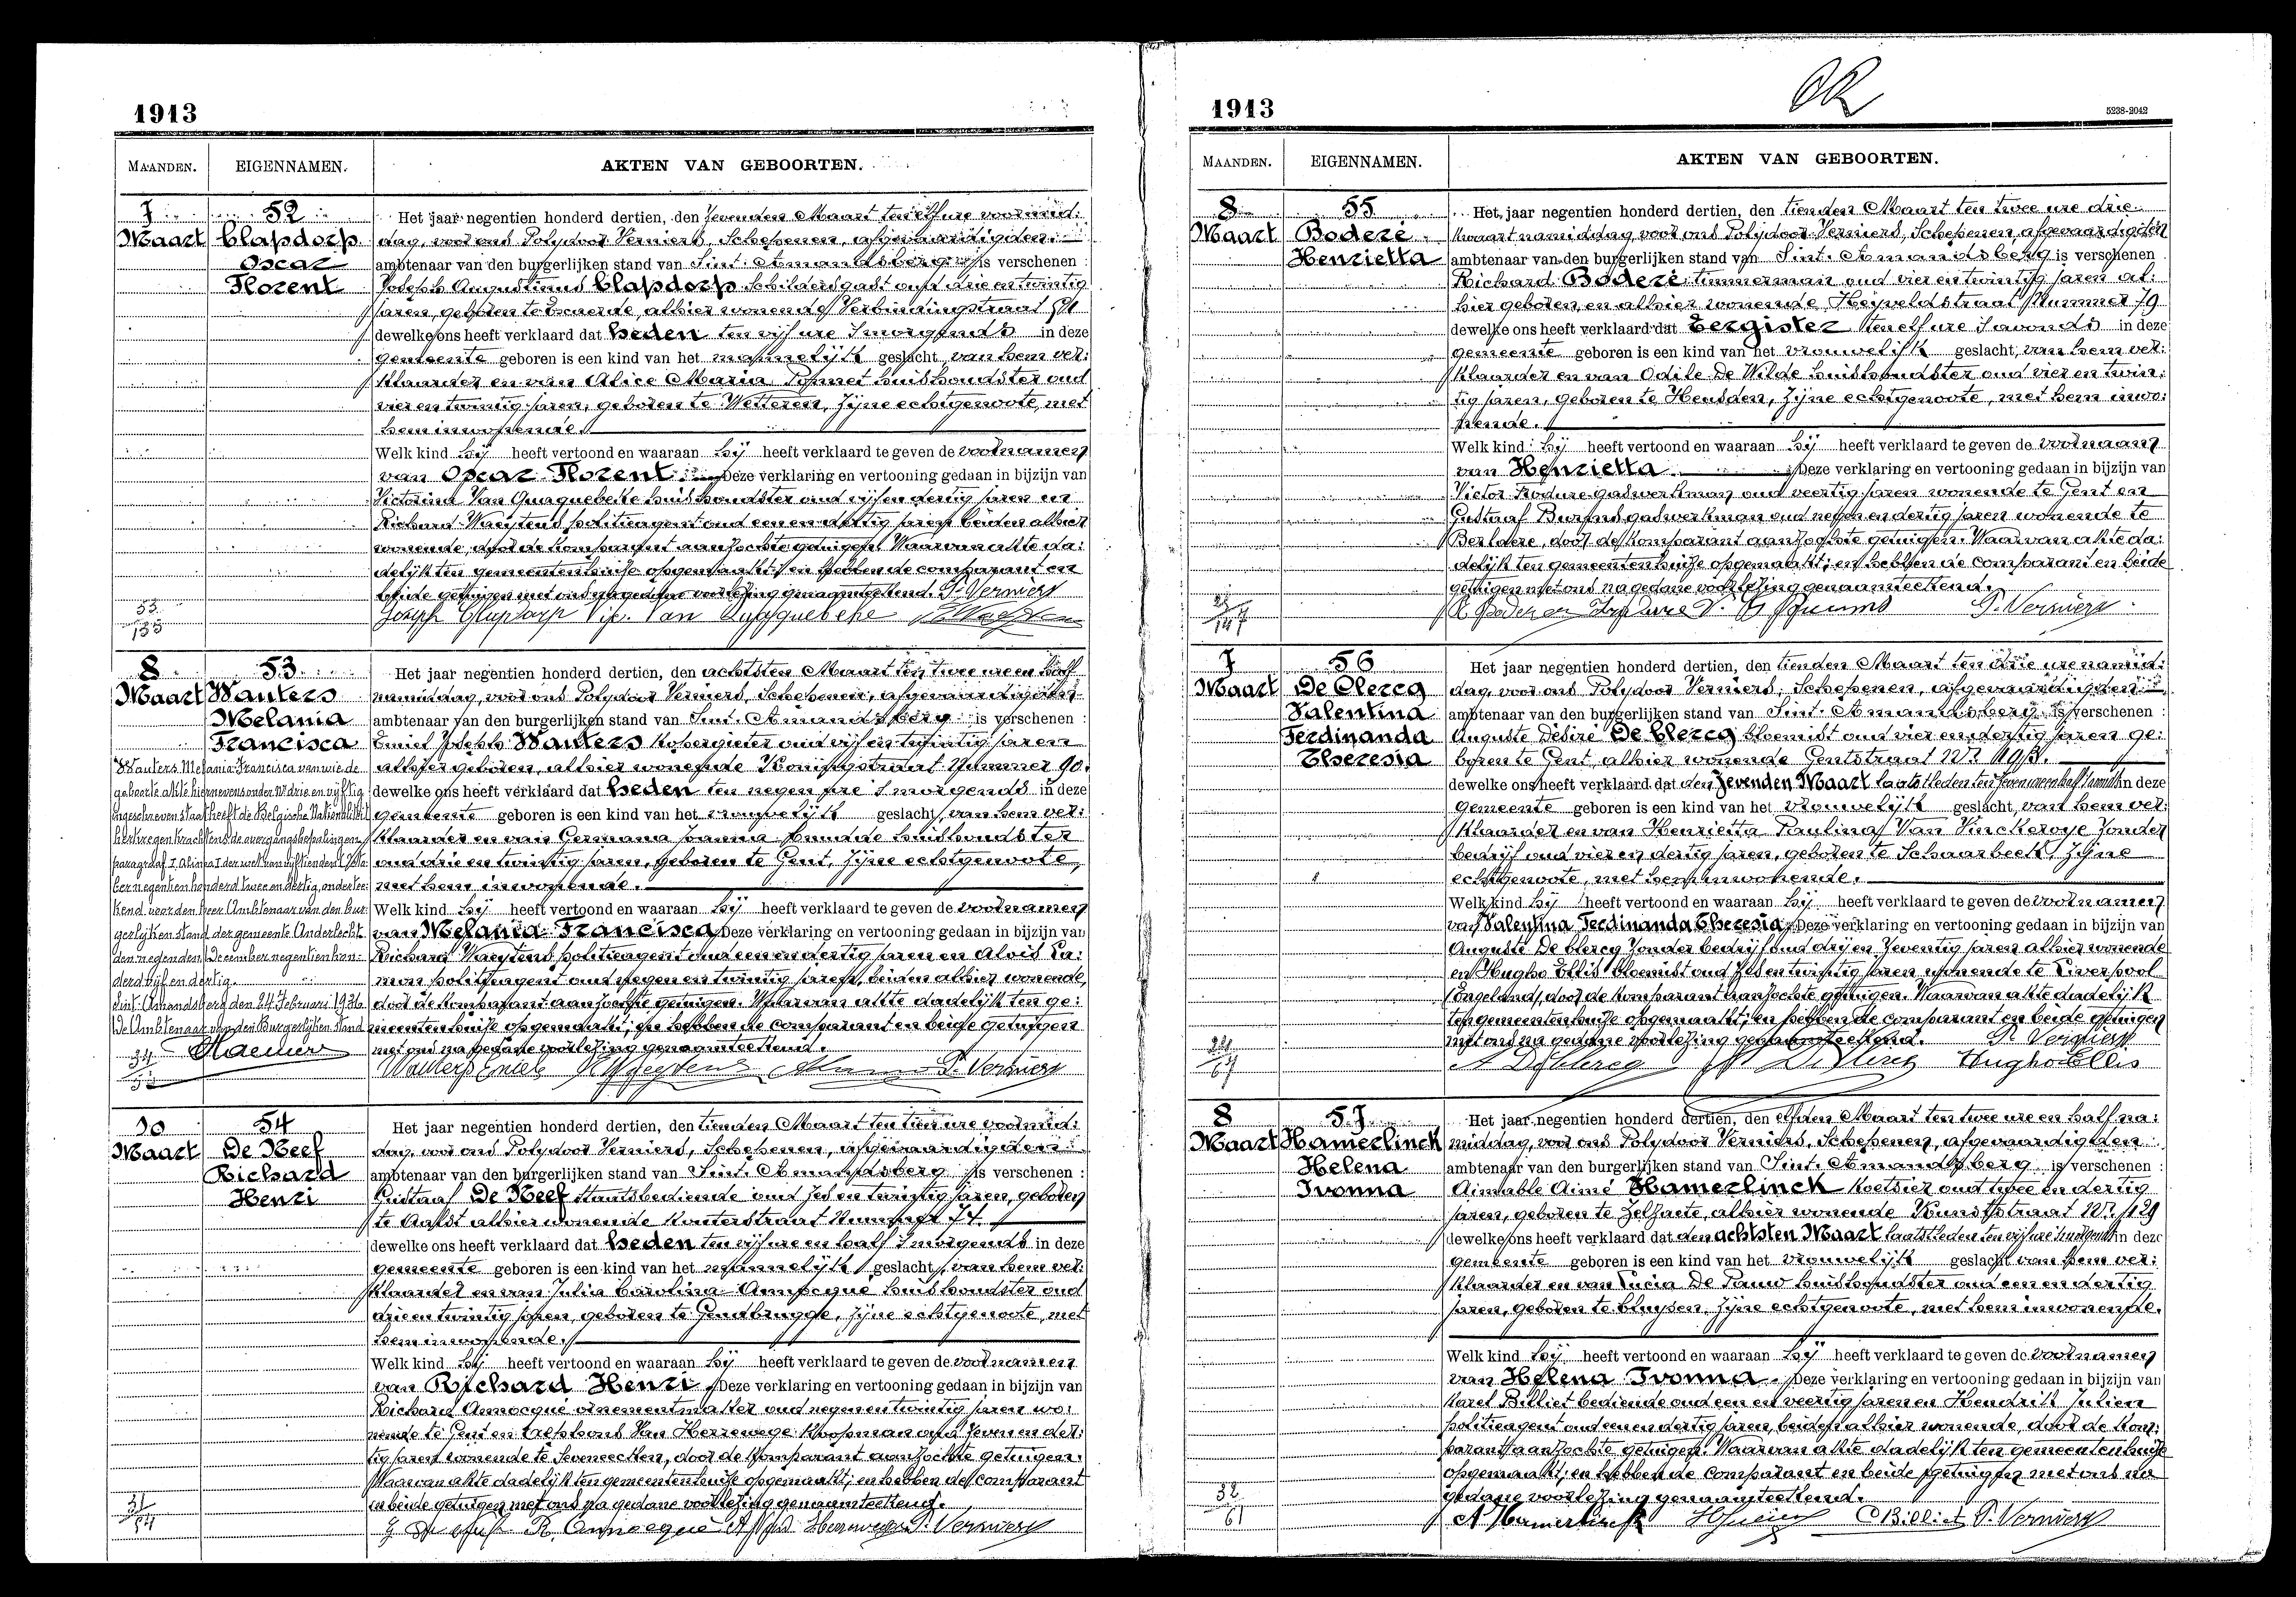 1913
MAANDEN. EIGENNAMEN. AKTEN VAN GEBOORTEN.
7 52 Het jaar negentien honderd dertien, den zevenden Maart ten elf ure voormid:
Maart Clapdorp dag, voor ons Polydoor Verniers, Schepenen, afgevaardigden
Oscar ambtenaar van den burgerlijken stand van Sint-Amandsberg is verschenen :
Florent Joseph Augustinus Clapdorp schildersgast oud drie en twintig
jaren, geboren te alhier wonende Verbindingstraat
dewelke ons heeft verklaard dat heden ten vijf ure 's morgends in deze
gemeente geboren is een kind van het mannelijk geslacht, van hem ver:
klaarder en van Alice Maria huishoudster oud
vier en twintig jaren, geboren te Wetteren, zijne echtgenoote, met
hem inwonende.
Welk kind hij heeft vertoond en waaraan hij heeft verklaard te geven de voornamen
van Oscar Florent. Deze verklaring en vertooning gedaan in bijzijn van
Victorina Van Quaquebeke huishoudster oud vijf en dertig jaren en
Richard Waeytens politieagent oud een en dertig jaren beiden alhier
wonende, door de komparant aanzochte getuigen. Waarvan akte da:
delijk ten gemeentenhuize opgemaakt; en hebben de comparant en
beide getuigen met ons na gedane voorlezing genaamteekend. P. Verniers
53
135
Joseph Clapdorp Vic. Van Quaquebeke
8 53 Het jaar negentien honderd dertien, den achtsten Maart ten twee ure en half
Maart Wauters namiddag, voor ons Polydoor Verniers, Schepenen, afgevaardigden
Melania ambtenaar van den burgerlijken stand van Sint-Amandsberg is verschenen :
Francisca Emiel Joseph Wauters kopergieter oud vijf en twintig jaren
alhier geboren, alhier wonende Koningstraat Nummer 90.
dewelke ons heeft verklaard dat heden ten negen ure 's morgends in deze
gemeente geboren is een kind van het vrouwelijk geslacht, van hem ver:
klaarder en van Germana Joanna huishoudster
oud drie en twintig jaren, geboren te Gent, zijne echtgenoote,
met hem inwonende.
Welk kind hij heeft vertoond en waaraan hij heeft verklaard te geven de voornamen
van Melania Francisca Deze verklaring en vertooning gedaan in bijzijn van
Richard Waeytens politieagent oud een en dertig jaren en Alois
politieagent oud negen en twintig jaren, beiden alhier wonende,
door de komparant aanzochte getuigen. Waarvan akte dadelijk ten ge:
meentenhuize opgemaakt; en hebben de comparant en beide getuigen
met ons na gedane voorlezing genaamteekend.
Wauters Emiel R Waeytens P. Verniers
Wauters Melania Francisca van wie de
geboorte akte hiernevens onder Nr drie en vijftig
ingeschreven staat heeft de Belgische Nationaliteit
verkregen krachtens de overgangsbepalingen,
paragraaf I, alinea I der wet van vijftienden October
negentien honderd twee en dertig, onderteekend
voor den heer Ambtenaar van den Bur:
gerlijken stand der gemeente Anderlecht
den negenden December negentien hon:
derd vijf en dertig.
Sint-Amandsberg den 24 Februari 1936.
De Ambtenaar van den Burgerlijken Stand
34
10 54 Het jaar negentien honderd dertien, den tienden Maart ten tien ure voormid:
Maart De Neef dag, voor ons Polydoor Verniers, Schepenen, afgevaardigden
Richard ambtenaar van den burgerlijken stand van Sint-Amandsberg is verschenen :
Henri Gustaaf De Neef staatsbediende oud zes en twintig jaren, geboren
te Aalst alhier wonende Kouterstraat Nummer 74.
dewelke ons heeft verklaard dat heden ten vijf ure en half 's morgends in deze
gemeente geboren is een kind van het mannelijk geslacht, van hem ver:
klaarder en van Julia Carolina Annocqué huishoudster oud
drie en twintig jaren, geboren te Gendbrugge, zijne echtgenoote, met
hem inwonende.
Welk kind hij heeft vertoond en waaraan hij heeft verklaard te geven de voornamen
van Richard Henri Deze verklaring en vertooning gedaan in bijzijn van
Richard Annocqué ornementmaker oud negen en twintig jaren wo:
nende te Gent en Alphons Van Herrewege koopman oud zeven en der:
tig jaren wonende te Seveneecken, door de komparant aanzochte getuigen.
Waarvan akte dadelijk ten gemeentenhuize opgemaakt; en hebben de comparant
en beide getuigen met ons na gedane voorlezing genaamteekend.
31
54
R. Annocqué P. Verniers
1913
5238-2042
MAANDEN. EIGENNAMEN. AKTEN VAN GEBOORTEN.
8 55 Het jaar negentien honderd dertien, den tienden Maart ten twee ure drie
Maart Boderé kwaart namiddag, voor ons Polydoor Verniers, Schepenen, afgevaardigden
Henrietta ambtenaar van den burgerlijken stand van Sint-Amandsberg is verschenen
Richard Boderé timmerman oud vier en twintig jaren al:
hier geboren, en alhier wonende, Heiveldstraat Nummer 79
dewelke ons heeft verklaard dat eergister ten elf ure 's avonds in deze
gemeente geboren is een kind van het vrouwelijk geslacht, van hem ver:
klaarder en van Odile De Wilde huishoudster oud vier en twin:
tig jaren, geboren te Heusden, zijne echtgenoote, met hem inwo:
nende.
Welk kind hij heeft vertoond en waaraan hij heeft verklaard te geven de voornaam
van Henrietta Deze verklaring en vertooning gedaan in bijzijn van
Victor gaswerkman oud veertig jaren wonende te Gent en
Gustaaf gaswerkman oud negen en dertig jaren wonende te
door de komparant aanzochte getuigen. Waarvan akte da:
delijk ten gemeentenhuize opgemaakt; en hebben de comparant en beide
getuigen met ons na gedane voorlezing genaamteekend.
147
P. Verniers
7 56 Het jaar negentien honderd dertien, den tienden Maart ten drie ure namid:
Maart De Clercq dag, voor ons Polydoor Verniers, Schepenen, afgevaardigden
Valentina ambtenaar van den burgerlijken stand van Sint-Amandsberg is verschenen :
Ferdinanda Auguste Désiré De Clercq bloemist oud vier en dertig jaren ge:
Theresia boren te Gent, alhier wonende Gentstraat
dewelke ons heeft verklaard dat den zevenden Maart laatstleden ten zeven ure en half 's avonds in deze
gemeente geboren is een kind van het vrouwelijk geslacht, van hem ver:
klaarder en van Henrietta Paulina Van Vinckeroye zonder
bedrijf oud vier en dertig jaren, geboren te Schaarbeek, zijne
echtgenoote, met hem inwonende.
Welk kind hij heeft vertoond en waaraan hij heeft verklaard te geven de voornamen
van Valentina Ferdinanda Theresia, Deze verklaring en vertooning gedaan in bijzijn van
Auguste De Clercq zonder bedrijf oud drij en zeventig jaren alhier wonende
en Hugho Ellis bloemist oud zes en twintig jaren wonende te Liverpool
(Engeland) door de komparant aanzochte getuigen. Waarvan akte dadelijk
ten gemeentenhuize opgemaakt; en hebben de comparant en beide getuigen
met ons na gedane voorlezing genaamteekend. P. Verniers
67
A De Clercq De Clercq Hugho Ellis
8 57 Het jaar negentien honderd dertien, den elfden Maart ten twee ure en half na:
Maart Hamerlinck middag, voor ons Polydoor Verniers, Schepenen, afgevaardigden
Helena ambtenaar van den burgerlijken stand van Sint-Amandsberg is verschenen :
Ivonna Aimable Aimé Hamerlinck koetsier oud twee en dertig
jaren, geboren te Zelzaete, alhier wonende
dewelke ons heeft verklaard dat den achtsten Maart laatstleden ten vijf ure 's morgends in deze
gemeente geboren is een kind van het vrouwelijk geslacht van hem ver:
klaarder en van Lucia De Pauw huishoudster oud een en dertig
jaren, geboren te Cluysen, zijne echtgenoote, met hem inwonende.
Welk kind hij heeft vertoond en waaraan hij heeft verklaard te geven de voornamen
van Helena Ivonna. Deze verklaring en vertooning gedaan in bijzijn van
Karel Billiet bediende oud een en veertig jaren en Hendrik Julien
politieagent oud een en dertig jaren, beiden alhier wonende, door de kom:
parant aanzochte getuigen. Waarvan akte dadelijk ten gemeentenhuize
opgemaakt; en hebben de comparant en beide getuigen met ons na
gedane voorlezing genaamteekend.
32
61
A Hamerlinck C Billiet P. Verniers